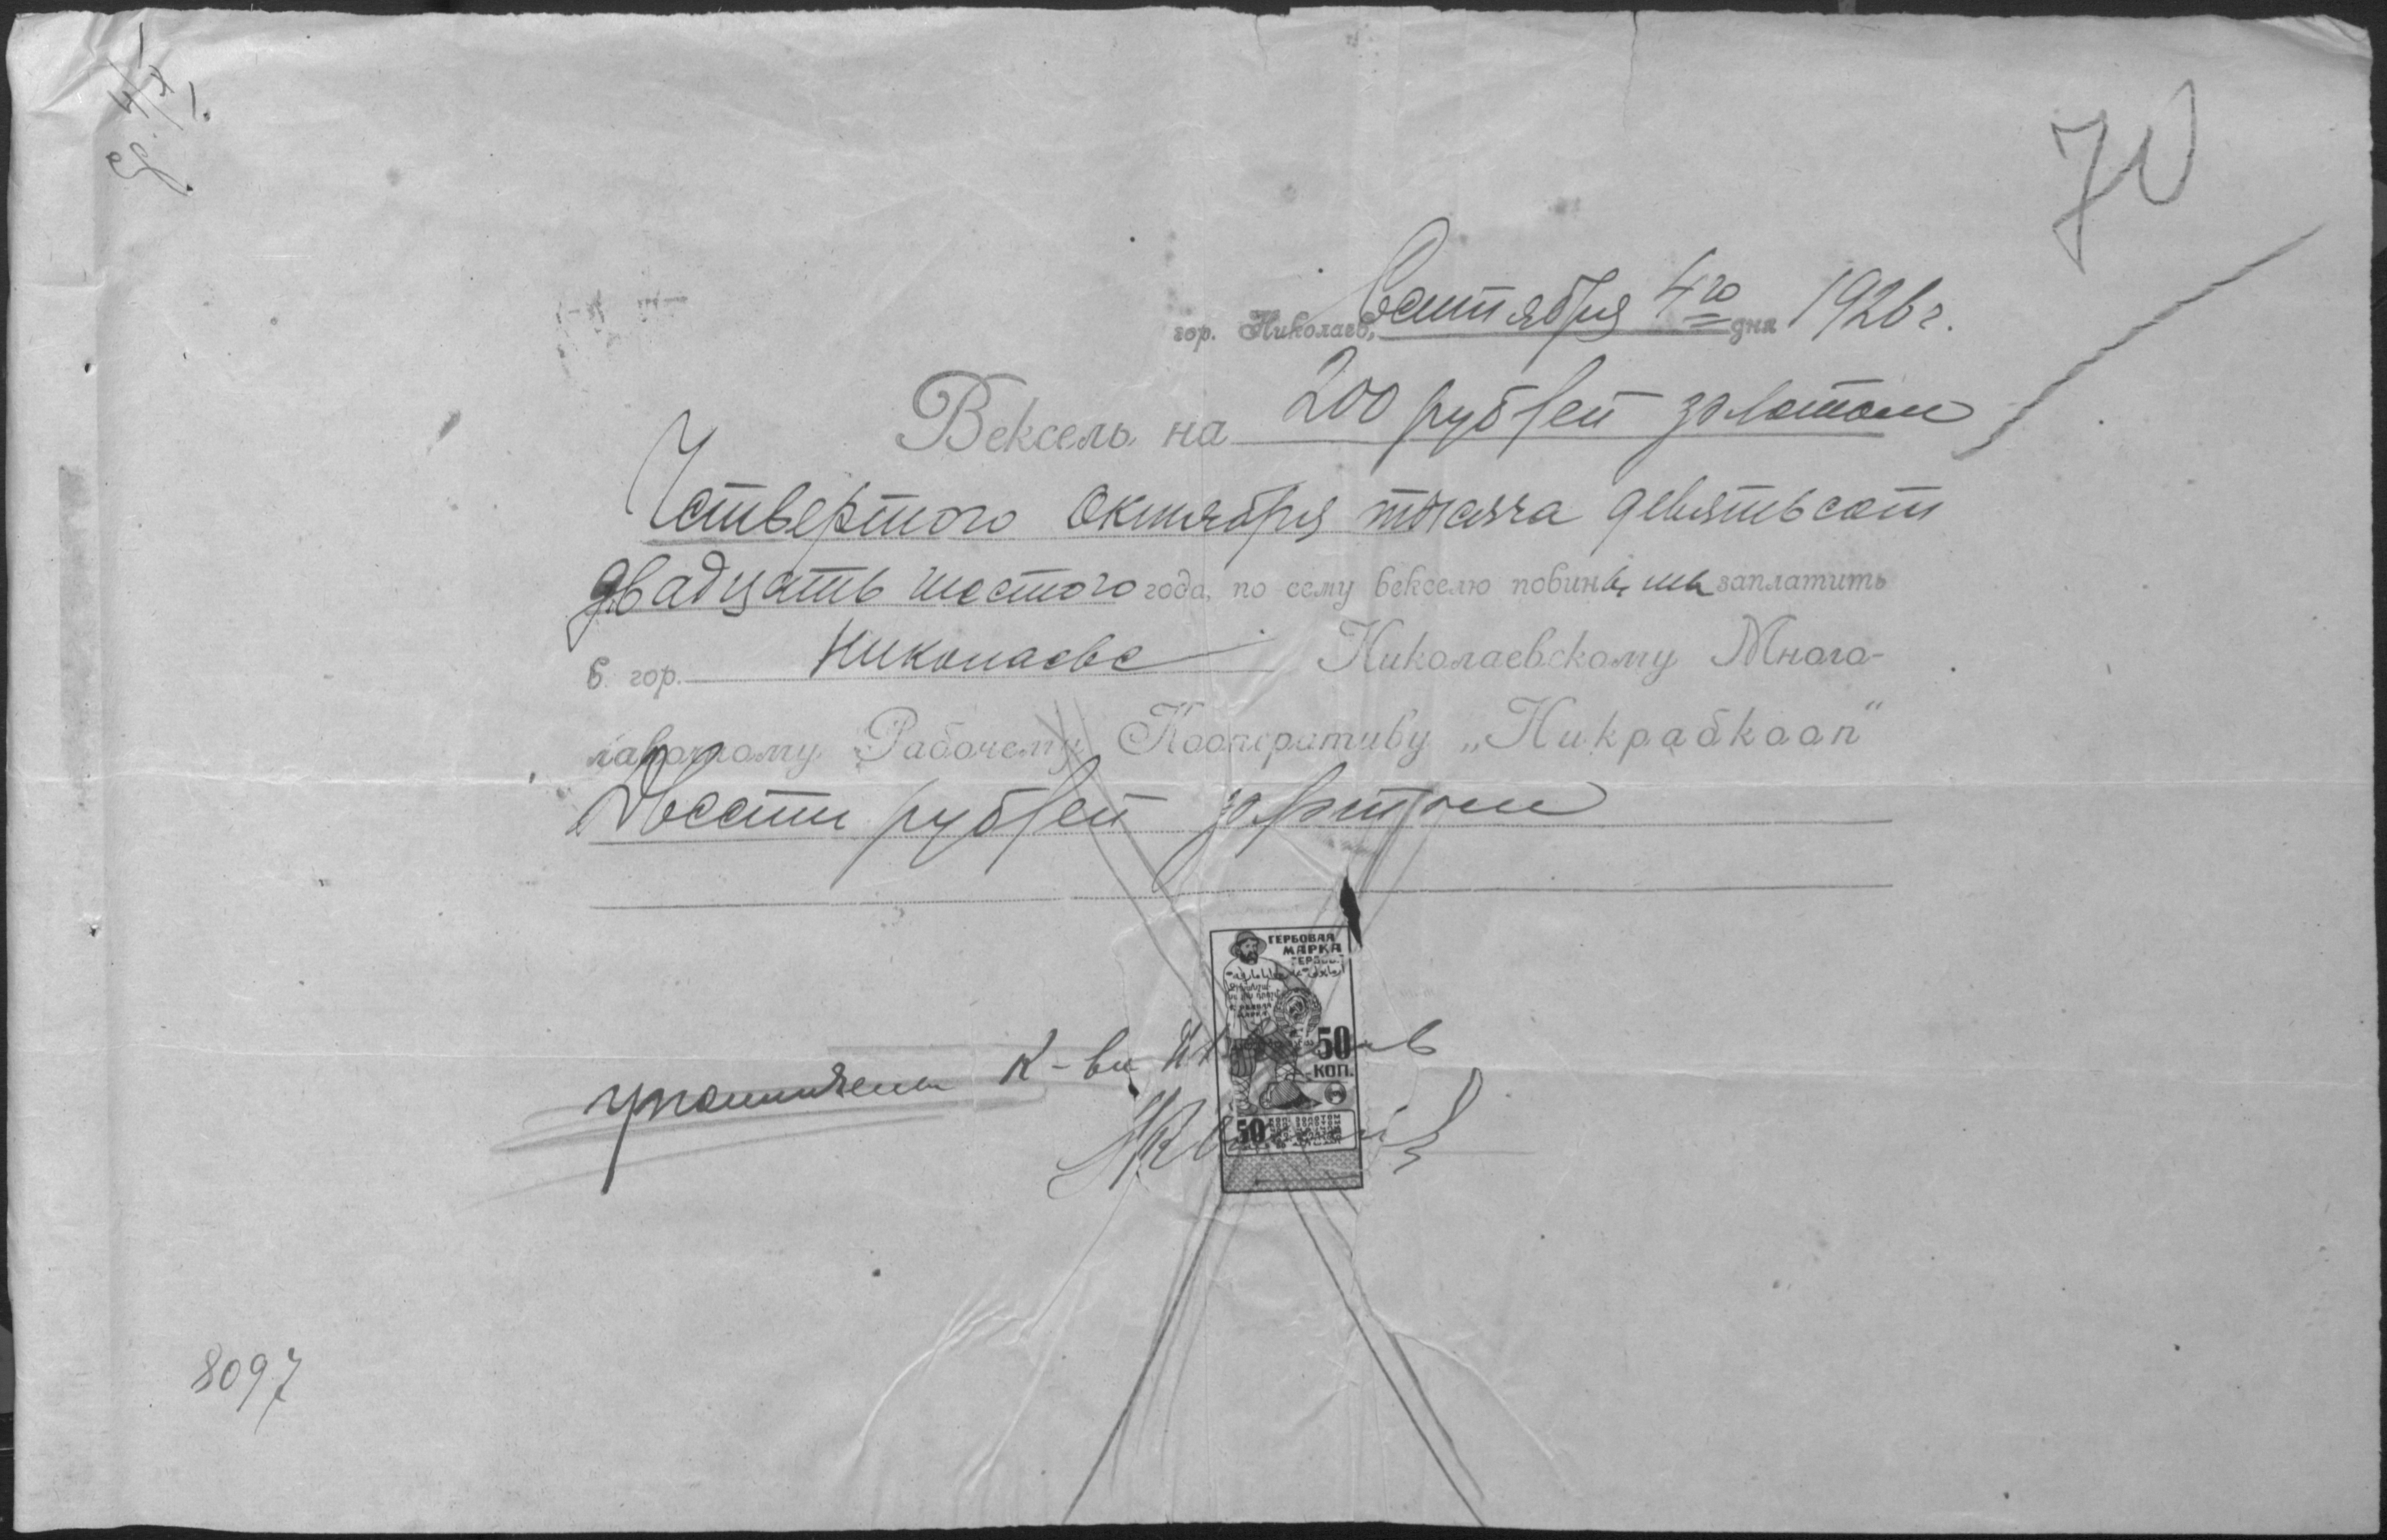 70
гор. Николаев, Сентября 4го дня 1926 г.
Вексель на 200 рублей золотом
Четвертого октября тысяча девятьсот
двадцать шестого года, по сему векселю повинны мы заплатить
в гор. Николаеве Николаевскому Много-
лавочному Рабочему Кооперативу „Никрабкооп“
Двести рублей золотом
ГЕРБОВАЯ
МАРКА
50
КОП.
50
К-ва
8097